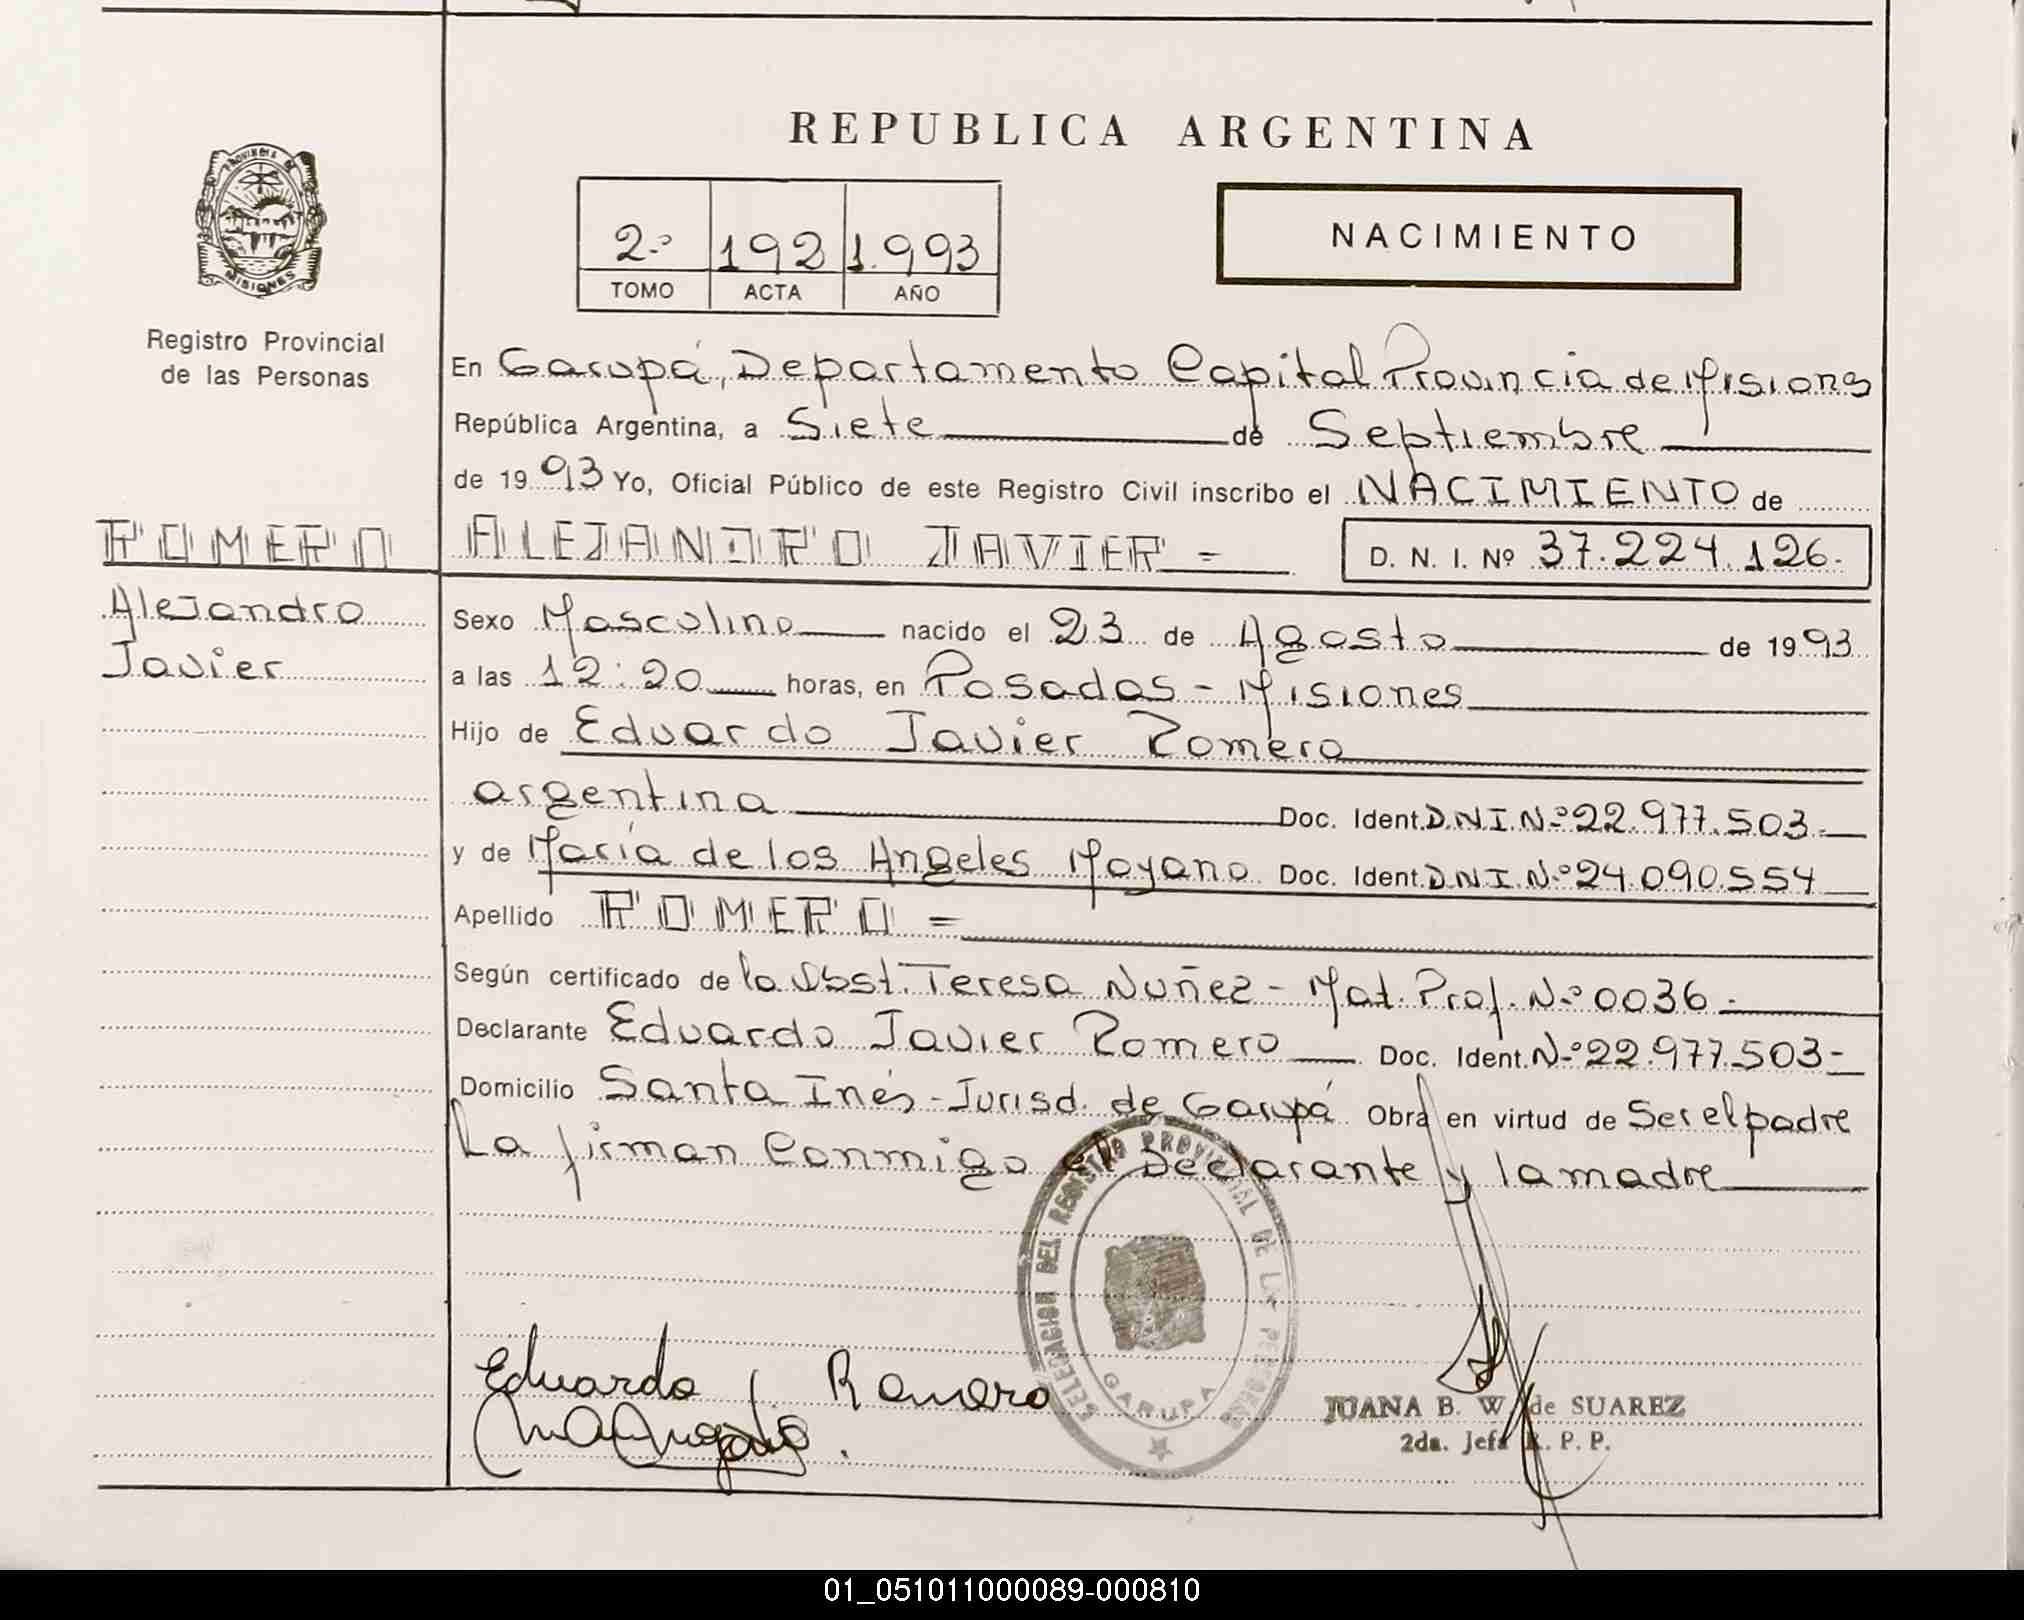 REPUBLICA ARGENTINA
PROVINCIA DE MISIONES
Registro Provincial
de las Personas
2º 192 1.993
TOMO ACTA AÑO
NACIMIENTO
En Garupá, Departamento Capital Provincia de Misiones
República Argentina, a Siete de Septiembre
de 1993 Yo, Oficial Público de este Registro Civil inscribo el NACIMIENTO de
ROMERO
Alejandro
Javier
ALEJANDRO JAVIER = D. N. I. Nº 37.224.126.
Sexo Masculino nacido el 23 de Agosto de 1993
a las 12:20 horas, en Posadas - Misiones
Hijo de Eduardo Javier Romero
argentina Doc. Ident. D.N.I. Nº 22.977.503-
y de María de los Angeles Moyano Doc. Ident. D.N.I. Nº 24.090.554
Apellido ROMERO =
Según certificado de la Obst. Teresa Nuñez - Mat. Prof. Nº 0036-
Declarante Eduardo Javier Romero Doc. Ident. Nº 22.977.503-
Domicilio Santa Inés - Jurisd. de Garupá Obra en virtud de Ser el padre
La firman Conmigo el Declarante y la madre
DELEGACION DEL REGISTRO PROVINCIAL DE LAS PERSONAS
GARUPA
Eduardo J Romero
JUANA B. W. de SUAREZ
2da. Jefa R. P. P.
01_051011000089-000810